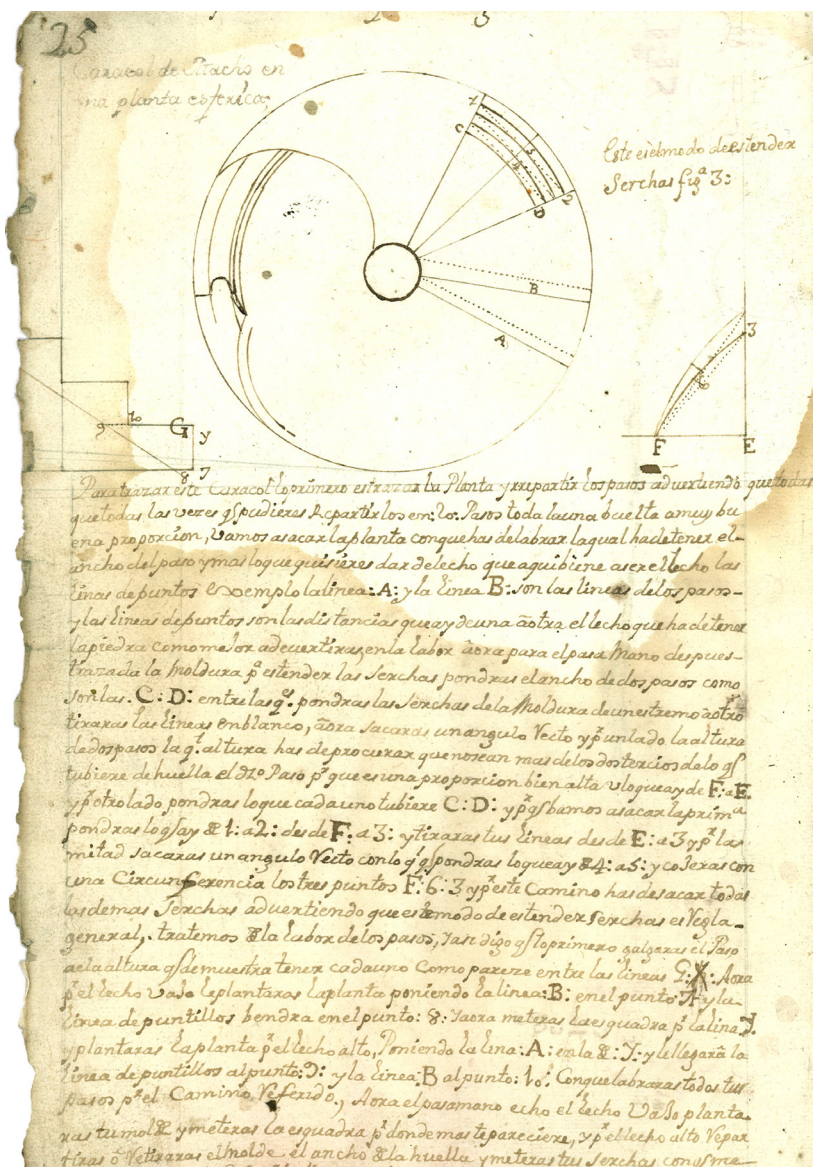 25
Caracol de Macho en
una planta esferica;
Este es el modo de estender
Serchas fig.ª 3:
1
C
5
4
D
2
B
A
3
6
F
E
9
10
G
y
8
7
Para trazar este Caracol lo primero es trazar la Planta y rrepartir los pasos advertiendo que todas
que todas las veces q̃ pudieres Repartirlos em: 20: Pasos toda la una buelta a muy bu
ena proporcion, Vamos a sacar la planta con que has de labrar la qual ha de tener el-
ancho del paso y mas lo que quisieres dar de lecho que aqui biene a ser el lecho las
linas de puntos Exemplo la linea: A: y la linea B: son las lineas de los pasos-
y las lineas de puntos son las distancias que ay de una a otra el lecho que ha de tener
la piedra como mejor adevertiras, en la labor aora para el pasa Mano despues-
trazada la Moldura p.ª estender las Serchas pondras el ancho de dos pasos como
son las. C: D: entre las q.s pondras las Serchas de la Moldura de un estremo a otro
tiraras las lineas en blanco, aora sacaras un angulo Recto y p.r un lado la altura
de dos pasos la q.l altura has de procurar que no sean mas de los dos tercios de lo q̃
tubiere de huella el dho Paso p.r que es una proporcion bien alta v lo que ay de F: a E.
y p.r otro lado pondras lo que cada uno tubiere C: D: y p.r q̃ bamos a sacar la prim.ª
pondras lo q̃ ay de 1: a 2: desde F: a 3: y tiraras tus lineas desde E: a 3 y p.r las
mitad sacaras un angulo Recto con lo q.l q̃ pondras lo que ay de 4: a 5: y cojeras con
una Circunferencia los tres puntos F: 6: 3 y p.r este Camino has de sacar todas
las demas Serchas advertiendo que este modo de estender Serchas es Regla-
general,. tratemos de la labor de los pasos, y asi digo q̃ lo primero galgaras el Paso
a la altura q̃ demuestra tener cada uno Como pareze entre las lineas G: Aora
p.r el lecho vajo le plantaras la planta poniendo la linea: B: en el punto 7: y la
linea de puntillos bendra en el punto: 8: y aora meteras la esquadra p.r la lina y.
y plantaras la planta p.r el lecho alto, Poniendo la lina: A: en la de: y: y le llegará la
linea de puntillos al punto: 9: y la linea: B al punto: 10: Con que labraras todos tus
pasos p.r el Camino Referido., Aora el pasamano echo el lecho vajo planta-
ras tu molde y meteras la esquadra p.r donde mas te pareciere, y p.r el lecho alto Repar
tiras o Retiraras el molde el ancho de la huella y meteras tus Serchas con